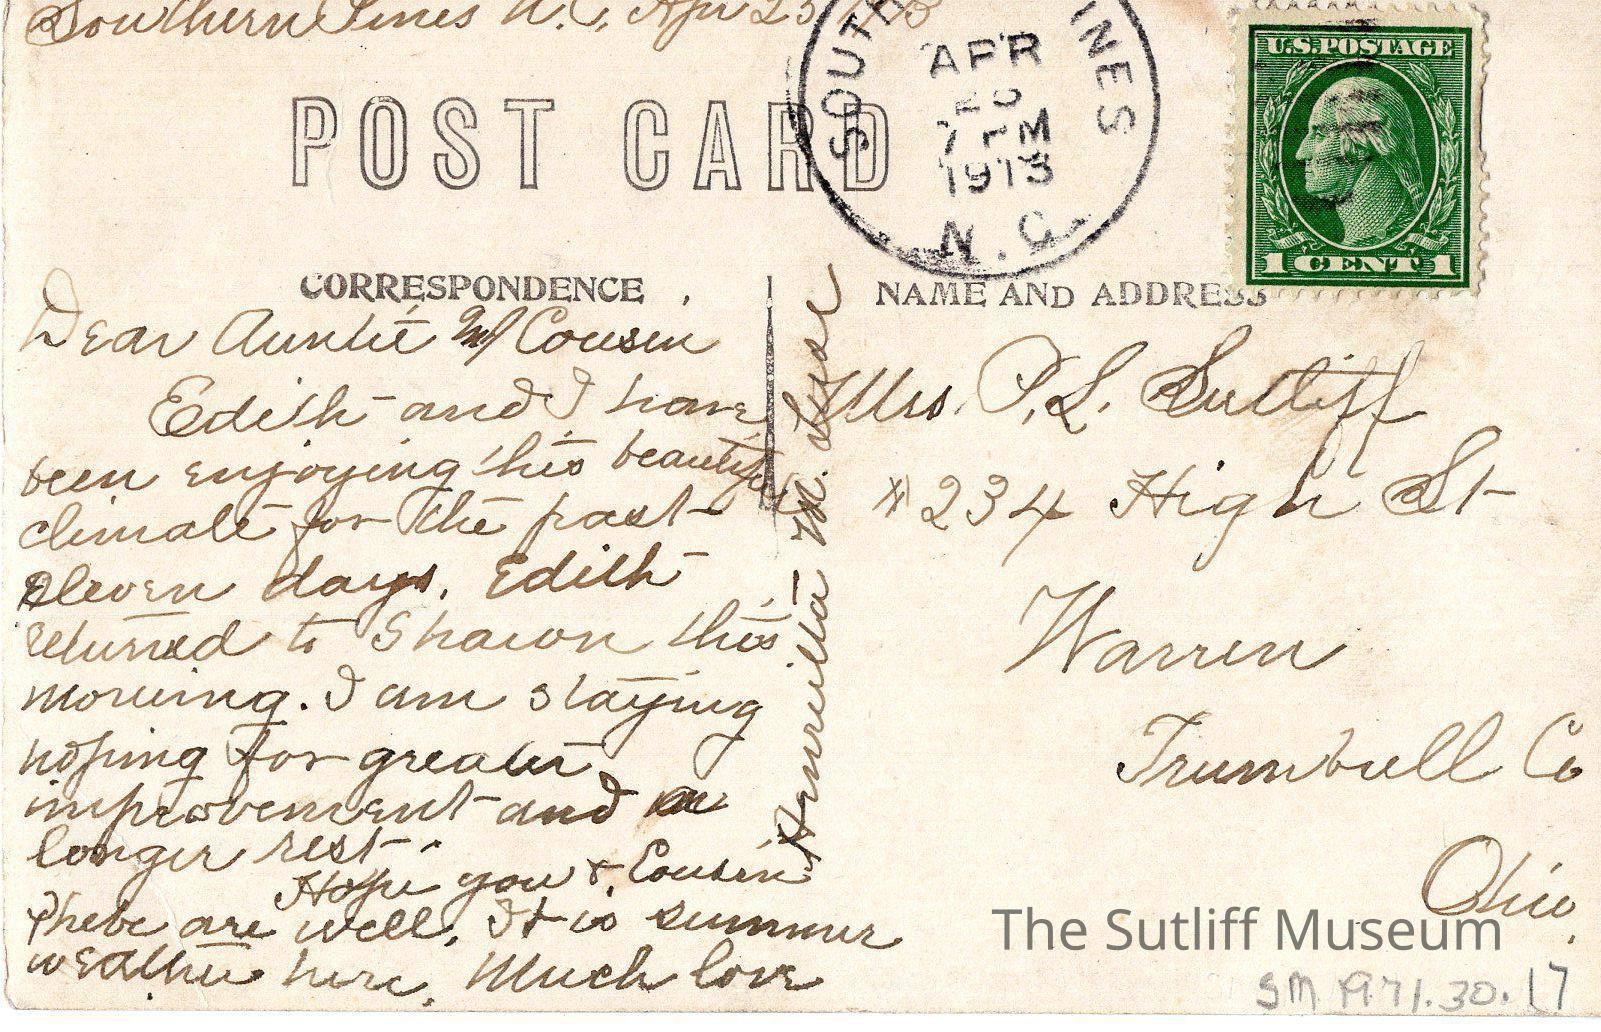 Southern Pines N.C. Apr 25
SOUTH INES
APR
7 PM
1913
N.C.
U.S. POSTAGE
1 CENT 1
POST CARD
CORRESPONDENCE
NAME AND ADDRESS
Dear Auntie & Cousin
Edith and I have
been enjoying this beautiful
climate for the past
eleven days. Edith
returned to Sharon this
morning. I am staying
hoping for greater
improvement and a
longer rest.
Hope you & Cousin
Phebe are well. It is summer
weather here. Much love
M.
Mrs. P. L. Sutliff
#234 High St
Warren
Trumbull Co
Ohio.
The Sutliff Museum
SM 1971.30.17